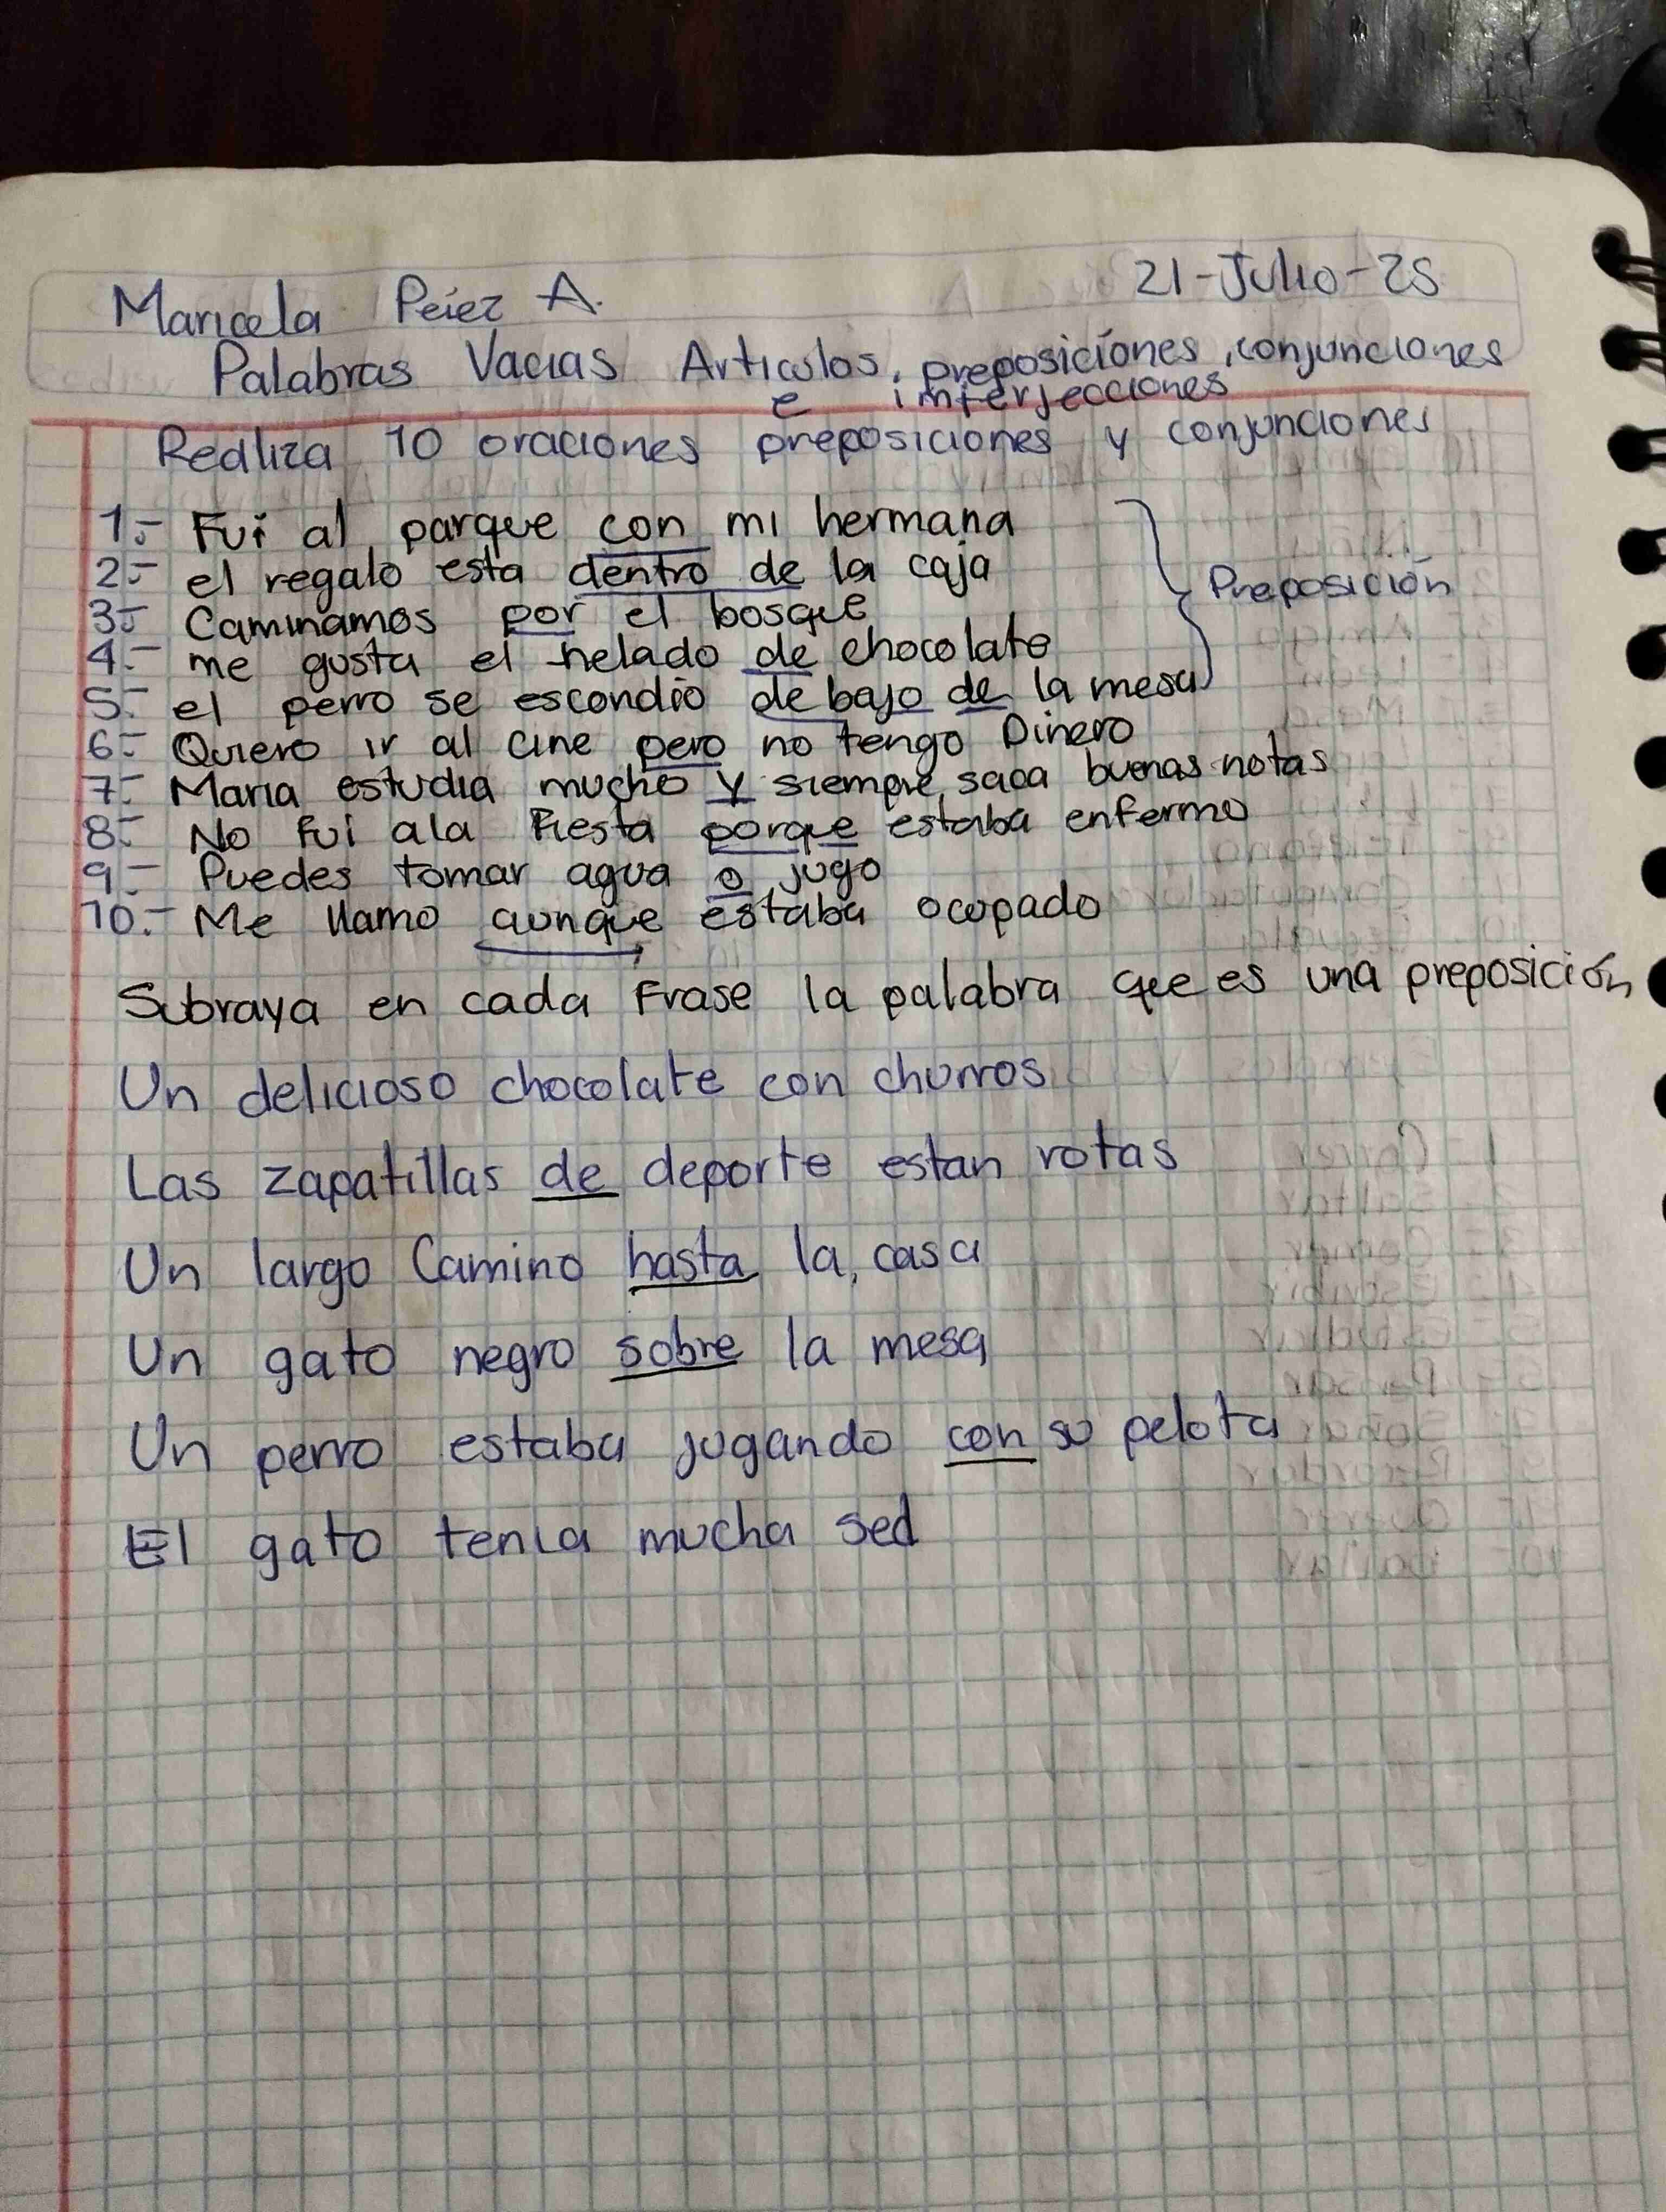 21-Julio-25
Maricela Pérez A.
Palabras Vacias Articulos, preposiciones, conjunciones
e interjecciones
Realiza 10 oraciones preposiciones y conjunciones
1.- Fui al parque con mi hermana
2.- el regalo esta dentro de la caja
Preposición
3.- Caminamos por el bosque
4.- me gusta el helado de chocolate
5.- el perro se escondio de bajo de la mesa
6.- Quiero ir al cine pero no tengo Dinero
7.- Maria estudia mucho y siempre saca buenas notas
8.- No fui ala Fiesta porque estaba enfermo
9.- Puedes tomar agua o jugo
10.- Me llamo aunque estaba ocupado
Subraya en cada Frase la palabra que es una preposición
Un delicioso chocolate con churros
Las zapatillas de deporte estan rotas
Un largo Camino hasta la casa
Un gato negro sobre la mesa
Un perro estaba jugando con su pelota
El gato tenia mucha sed